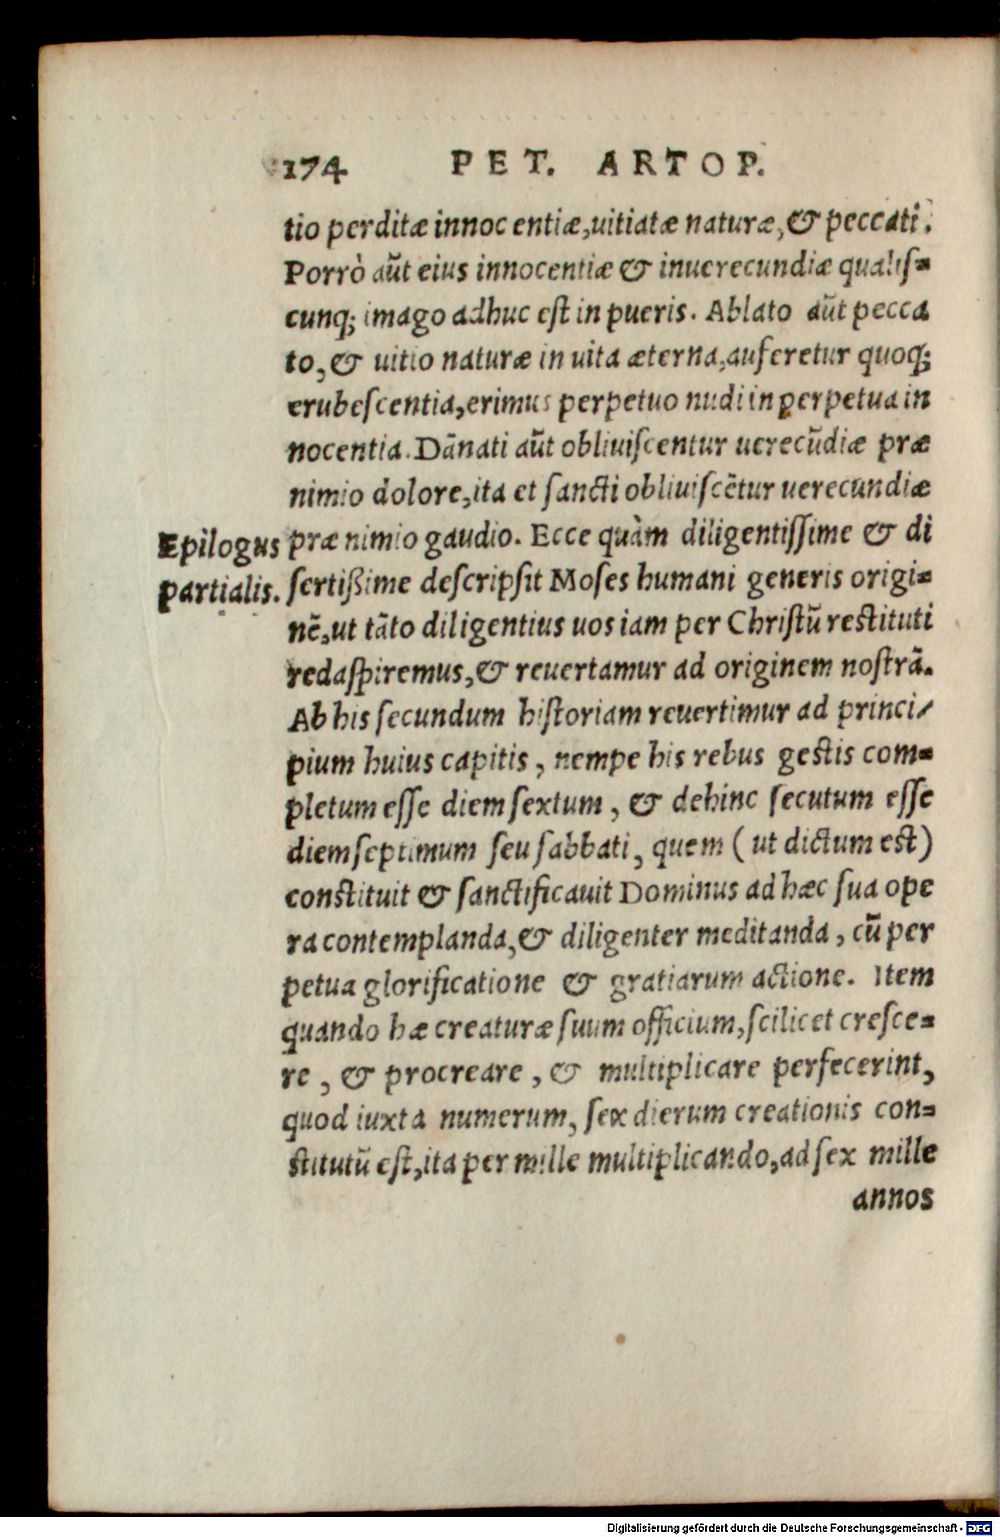 174 PET. ARTOP.
tio perditæ innocentiæ, uitiatæ naturæ, & peccati.
Porrò aūt eius innocentiæ & inuerecundiæ qualis=
cunq; imago adhuc est in pueris. Ablato aūt pecca
to, & uitio naturæ in uita æterna, auferetur quoq;
erubescentia, erimus perpetuo nudi in perpetua in
nocentia. Dānati aūt obliuiscentur uerecūdiæ præ
nimio dolore, ita et sancti obliuiscētur uerecundiæ
præ nimio gaudio. Ecce quàm diligentissime & di
Epilogus
partialis.
sertißime descripsit Moses humani generis origi=
nē, ut tāto diligentius uos iam per Christū restituti
redaspiremus, & reuertamur ad originem nostrā.
Ab his secundum historiam reuertimur ad princi/
pium huius capitis, nempe his rebus gestis com=
pletum esse diem sextum, & dehinc secutum esse
diem septimum seu sabbati, quem (ut dictum est)
constituit & sanctificauit Dominus ad hæc sua ope
ra contemplanda, & diligenter meditanda, cū per
petua glorificatione & gratiarum actione. Item
quando hæ creaturæ suum officium, scilicet cresce=
re, & procreare, & multiplicare perfecerint,
quod iuxta numerum, sex dierum creationis con=
stitutū est, ita per mille multiplicando, ad sex mille
annos
Digitalisierung gefördert durch die Deutsche Forschungsgemeinschaft - DFG